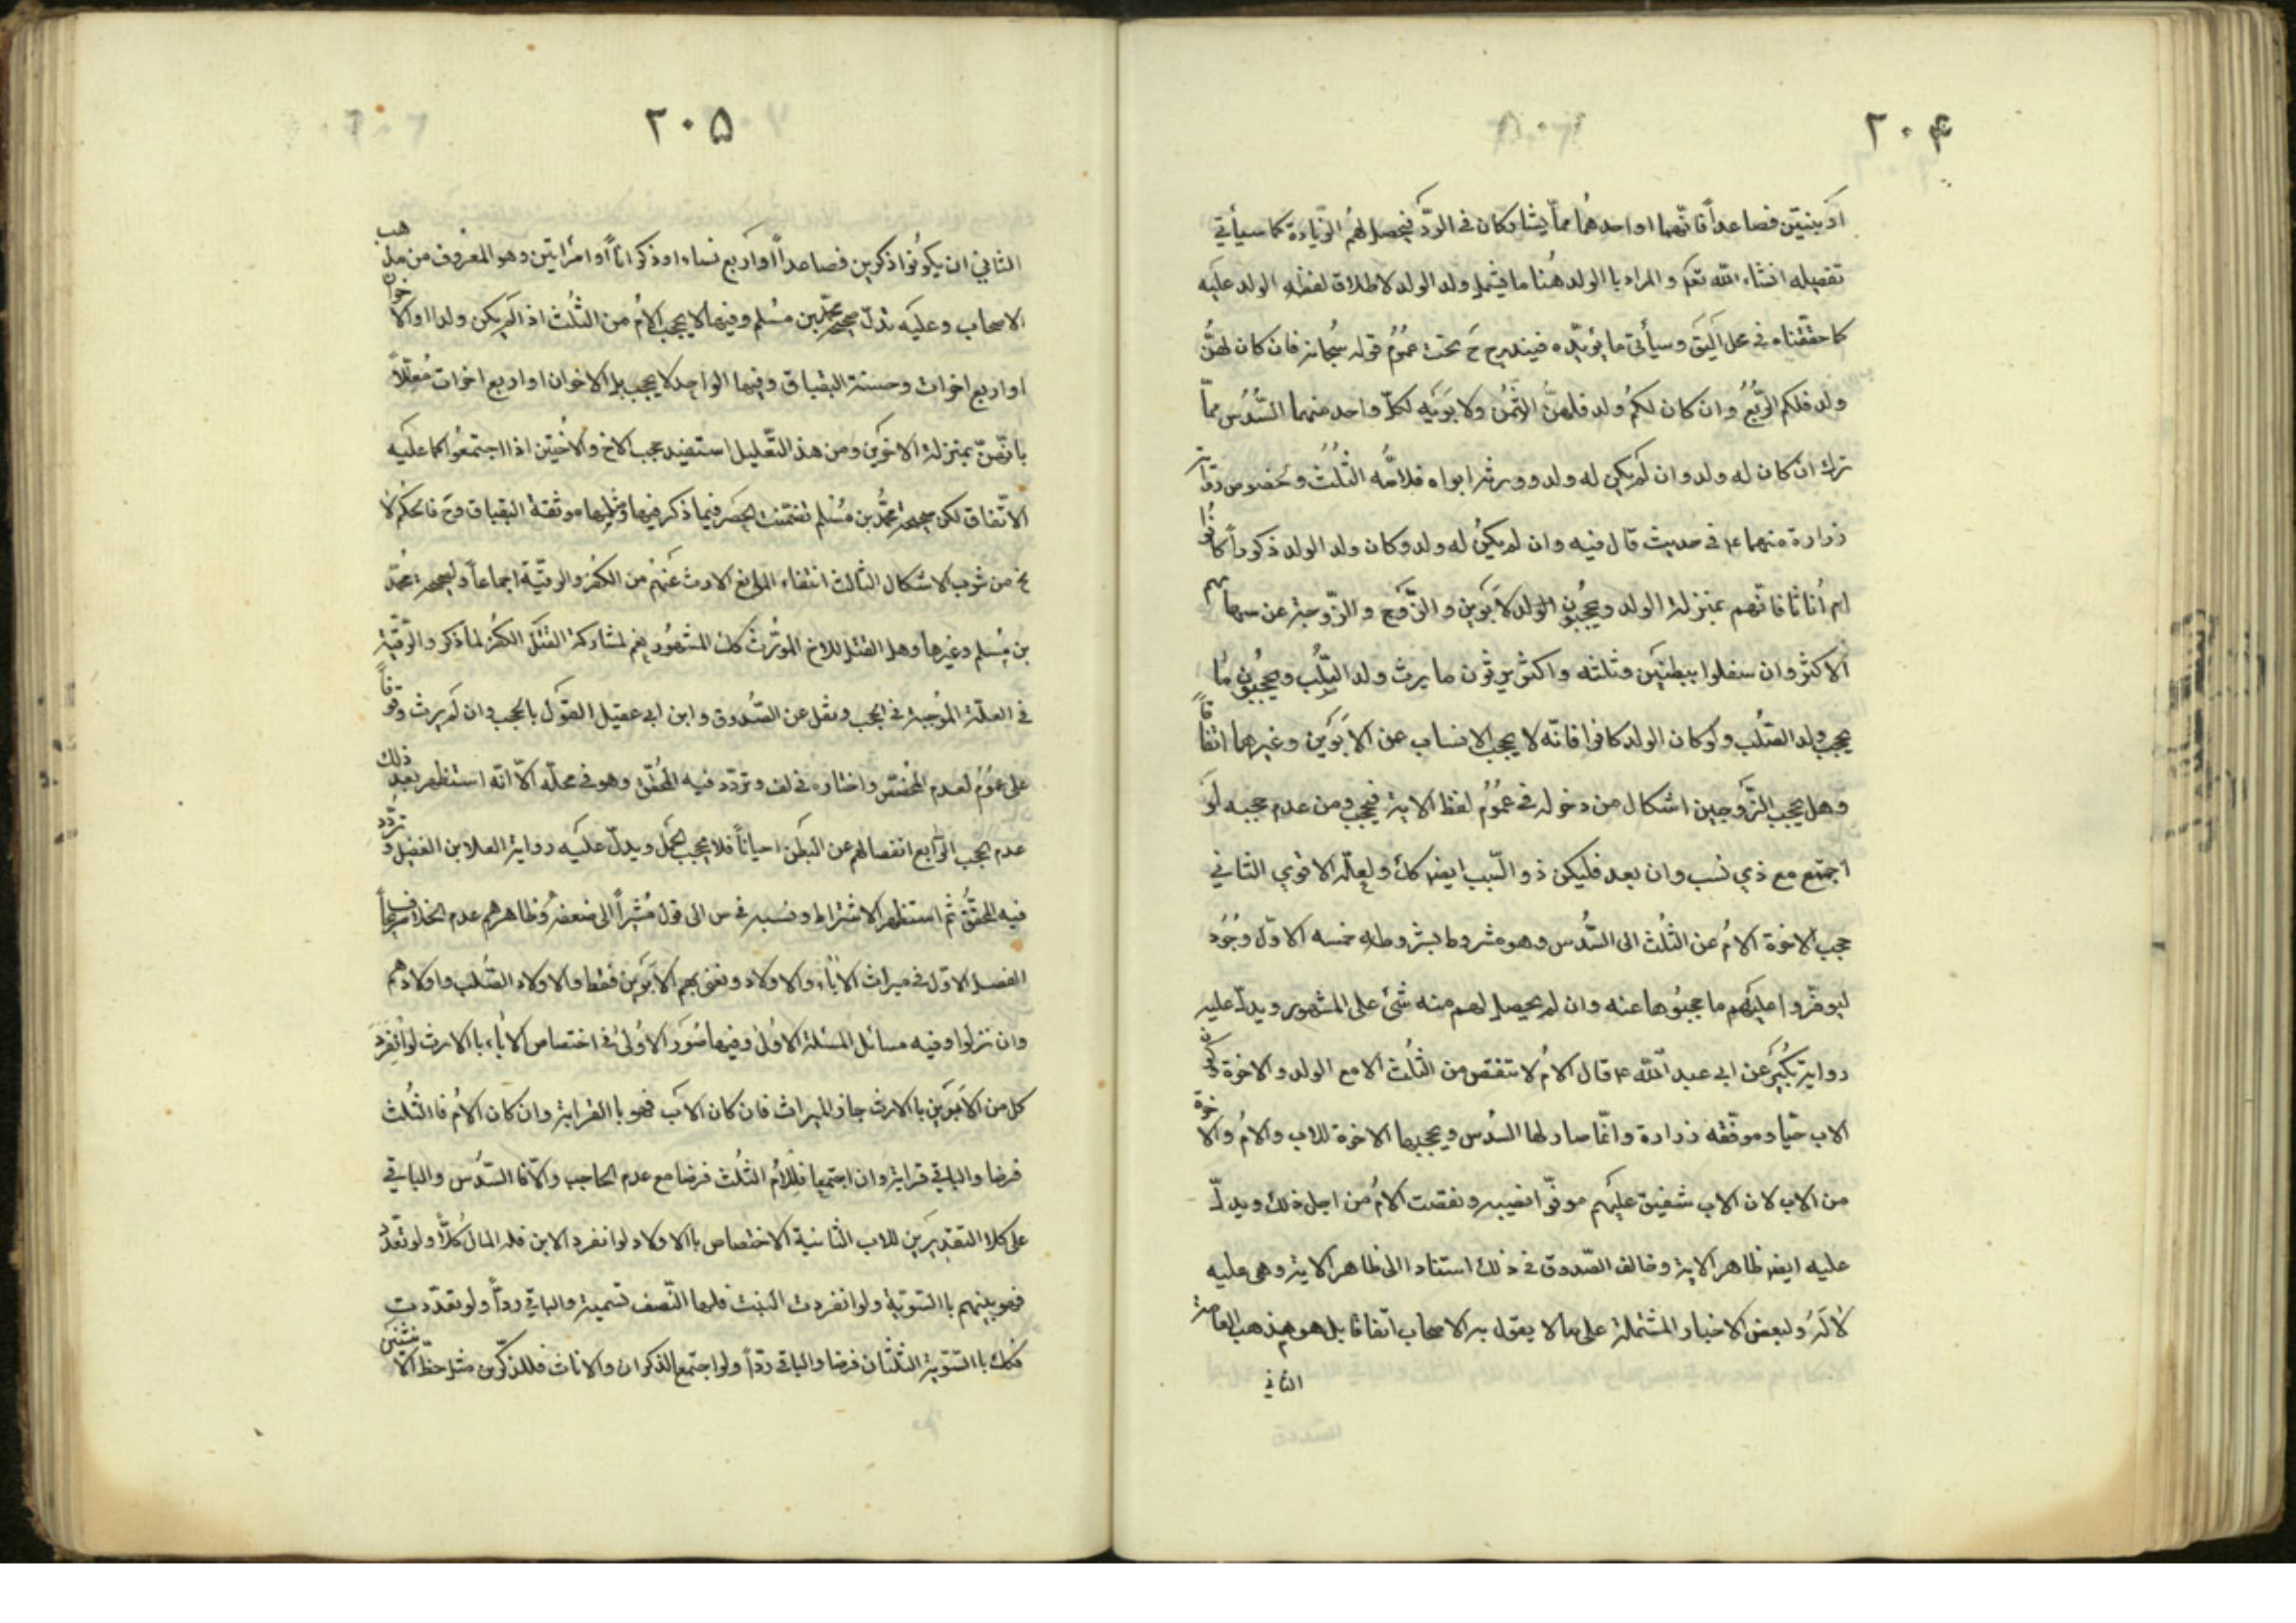 ٢٠۴
او بنتين فصاعداً فانّهما او احدهُما ممّا يشاركان في الردّ فيحصل لهُم الزّيادة كما سيأتي
تفصيله انشاء الله تعم والمراد با الولد هُنا ما يشمل ولد الولد لاطلاق لفظه الولد عليه
كما حققناه في محل اليق وسيأتي ما يؤيّده فيندرج ح تحت عمُوم قوله سُبحانه فان كان لهنَّ
ولد فلكم الرّبعُ وان كان لكم ولد فلهنَّ الثّمنُ ولابَوَيه لكلّ واحد منهما السُّدُس ممّا
ترك ان كان له ولد وان لم يكن له ولد وورثه ابواه فلامّه الثلُث وخصوص رواية
زرارة عنهما ع في حديث قال فيه وان لم يكن له ولد وكان ولد الولد ذكوراً كانُوا
ام اُناثا فانّهم بمنزلة الولد ويحجُبون الولد لابَوين والزّوج والزّوجة عن سهامهم
الاكثر وان سفلوا ببطنَين وثلثه واكثر يرثون ما يرث ولد الصّلب ويحجبُون ما
يحجب ولد الصّلب ولو كان الولد كافرا فانّه لا يحجب الانساب عن الابَوَين وغيرهما اتفاقاً
وهل يحجب الزّوجين اشكال من دخوله في عمُوم لفظ الاية فيحجب ومن عدم حجبه لو
اجتمع مع ذي نسب وان بعد فليكن ذو السّبب ايضا كك ولعلّه الاقوي الثاني
حجب الاخوة الام عن الثلُث الى السُّدس وهو مشروط بشروط خمسه الاوّل وجُود
ليوفّروا عليهم ما حجبُوها عنه وان لم يحصل لهم منه شئ على المشهور ويدلّ عليه
رواية بكُير عن ابي عبد الله ع قال الام لا تنقص من الثلُث الا مع الولد والاخوة وكون
الاب حيّا وموثّقه زرارة وانّما صار لها السدُس ويحجبها الاخوة للاب والام والاخوة
من الاب لان الاب ينفق عليهم موفّر انصيبه ونقصت الام من اجل ذلك ويدلّ
عليه ايضا ظاهر الاية وخالف الصّدوق في ذلك استنادا الى ظاهر الاية وهي عليه
لا لَهُ ولبعض الاخبار المشتملة على ما لا يقول به الاصحاب اتّفاقا بل هو مذهب العامة
الثاني
٢٠۵
الثاني ان يكونُوا ذكرين فصاعداً او اربع نساء او ذكر اناً او امرأتين وهو المعروف من مذهب
الاصحاب وعليه تدلّ صحيحة محمّد بن مُسلم وفيها لا يحجب الام من الثلُث اذا لم يكن ولد الا الاخوان
او اربع اخوات وحسنة البقباق وفيها الواحد لا يحجب بل الاخوان او اربع اخوات مُعلّلاً
بانّهنّ بمنزلة الاخوين ومن هذا التّعليل استفيد حجب الاخ والاُختين اذا اجتمعُوا كما عليه
الاتّفاق لكن صحيحة محمُّد بن مُسلم تضمّنت الحصر فيما ذكر فيها ومثلها موثّقة البقباق وح فالحكم لا
يخ من شوب الاشكال الثالث انتفاء الموانع الارث عنهُم من الكفر والرقيّة اجماعاً ولصحيحة محُمّد
بن مُسلم وغيرها وهل القتل للاخ المورُث كك المشهُور نعم لمشاركة القتل الكفر لما ذكر والرّقيّة
في العلّة المُوجبة في الحجب ونقل عن الصّدوق وابن ابي عقيل القول بالحجب وان لم يرث وقوفاً
على عمُوم لعدم المخصّص واختاره في لف وتردّد فيه المُحقّق وهو في محلّه الّا انّه استظهر بعد ذلك
عدم الحجب الرّابع انفصالهم عن البطن احياناً فلا يحجب الحمل ويدلّ عليه رواية العلا بن الفضيل وتردّد
فيه المحققُّ ثم استظهر الاشتراط ونسبه في س الى قول مُشيراً الى ضعفه وظاهرهم عدم الخلاف
الفصل الاوّل في ميراث الاباء والاولاد ونعني بهم الابوين فقط والاولاد الصّلب واولادهم
وان نزلوا وفيه مسائل المسئلة الاولى وفيها صُور الاُولى في اختصاص الاباء با الارث لو انفَرد
كل من الابوين با الارث حاز الميراث فان كان الاب فهو با القرابة وان كان الام فا الثُلث
فرضا والباقي قرابة وان اجتمعا فللام الثلُث فرضا مع عدم الحاجب والّا فا السّدُس والباقي
على كلا التقديرين للاب الثانية الاختصاص با الاولاد لو انفرد الابن فله المال كُلّه ولو تعدّد
فهو بينهم با السّويّة ولو انفردت البنت فلها النّصف تسمية والباقي ردّاً ولو تعدّدت
فكك با السّويّة الثلثان فرضا والباقي ردّاً ولو اجتمع الذكران والاناث فللذكر مثل حظّ الانثيين